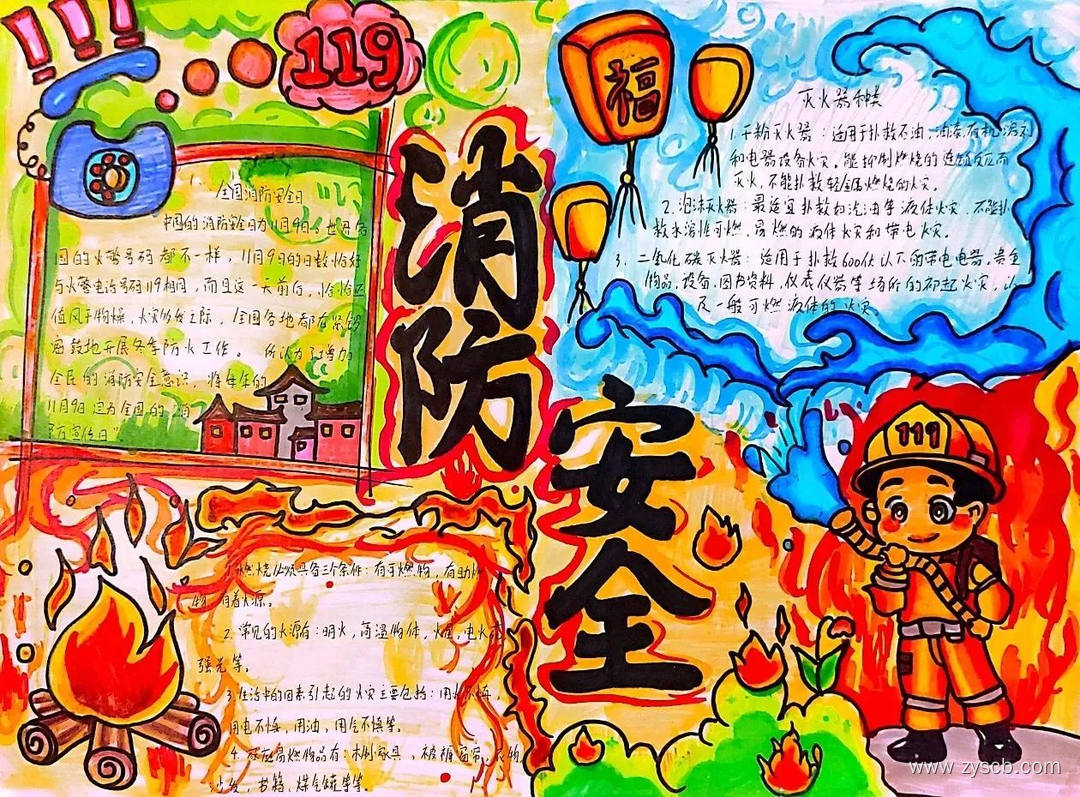 119
消防
安全
全国消防安全日
中国的消防安全日为11月9日。世界各
国的火警号码都不一样，11月9日的日数恰好
与火警电话号码119相同，而且这一天前后，恰恰正
值风干物燥，火灾多发之际，全国各地都在紧锣
密鼓地开展冬季防火工作。所以为了增加
全民的消防安全意识，将每年的
11月9日定为全国的"消
防宣传日"
福
灭火器种类
1.干粉灭火器：适用于扑救石油，油漆，有机溶剂
和电器设备火灾。能抑制燃烧的连锁反应而
灭火，不能扑救轻金属燃烧的火灾。
2.泡沫灭火器：最适宜扑救如汽油等液体火灾，不能扑
救水溶性可燃，易燃的液体火灾和带电火灾。
3.二氧化碳灭火器：适用于扑救600伏以下的带电电器，贵重
物品，设备，图书资料，仪表仪器等场所的初起火灾，以
及一般可燃液体的火灾。
119
1.燃烧必须具备三个条件：有可燃物，有助燃
物 有着火源。
2.常见的火源有：明火，高温物体，火星，电火花
强光等。
3.生活中的因素引起的火灾主要包括：用火不慎，
用电不慎，用油，用气不慎等。
4.家庭易燃物品有：木制家具，被褥窗帘，
沙发，书籍，煤气罐等等。
www.zyscb.com